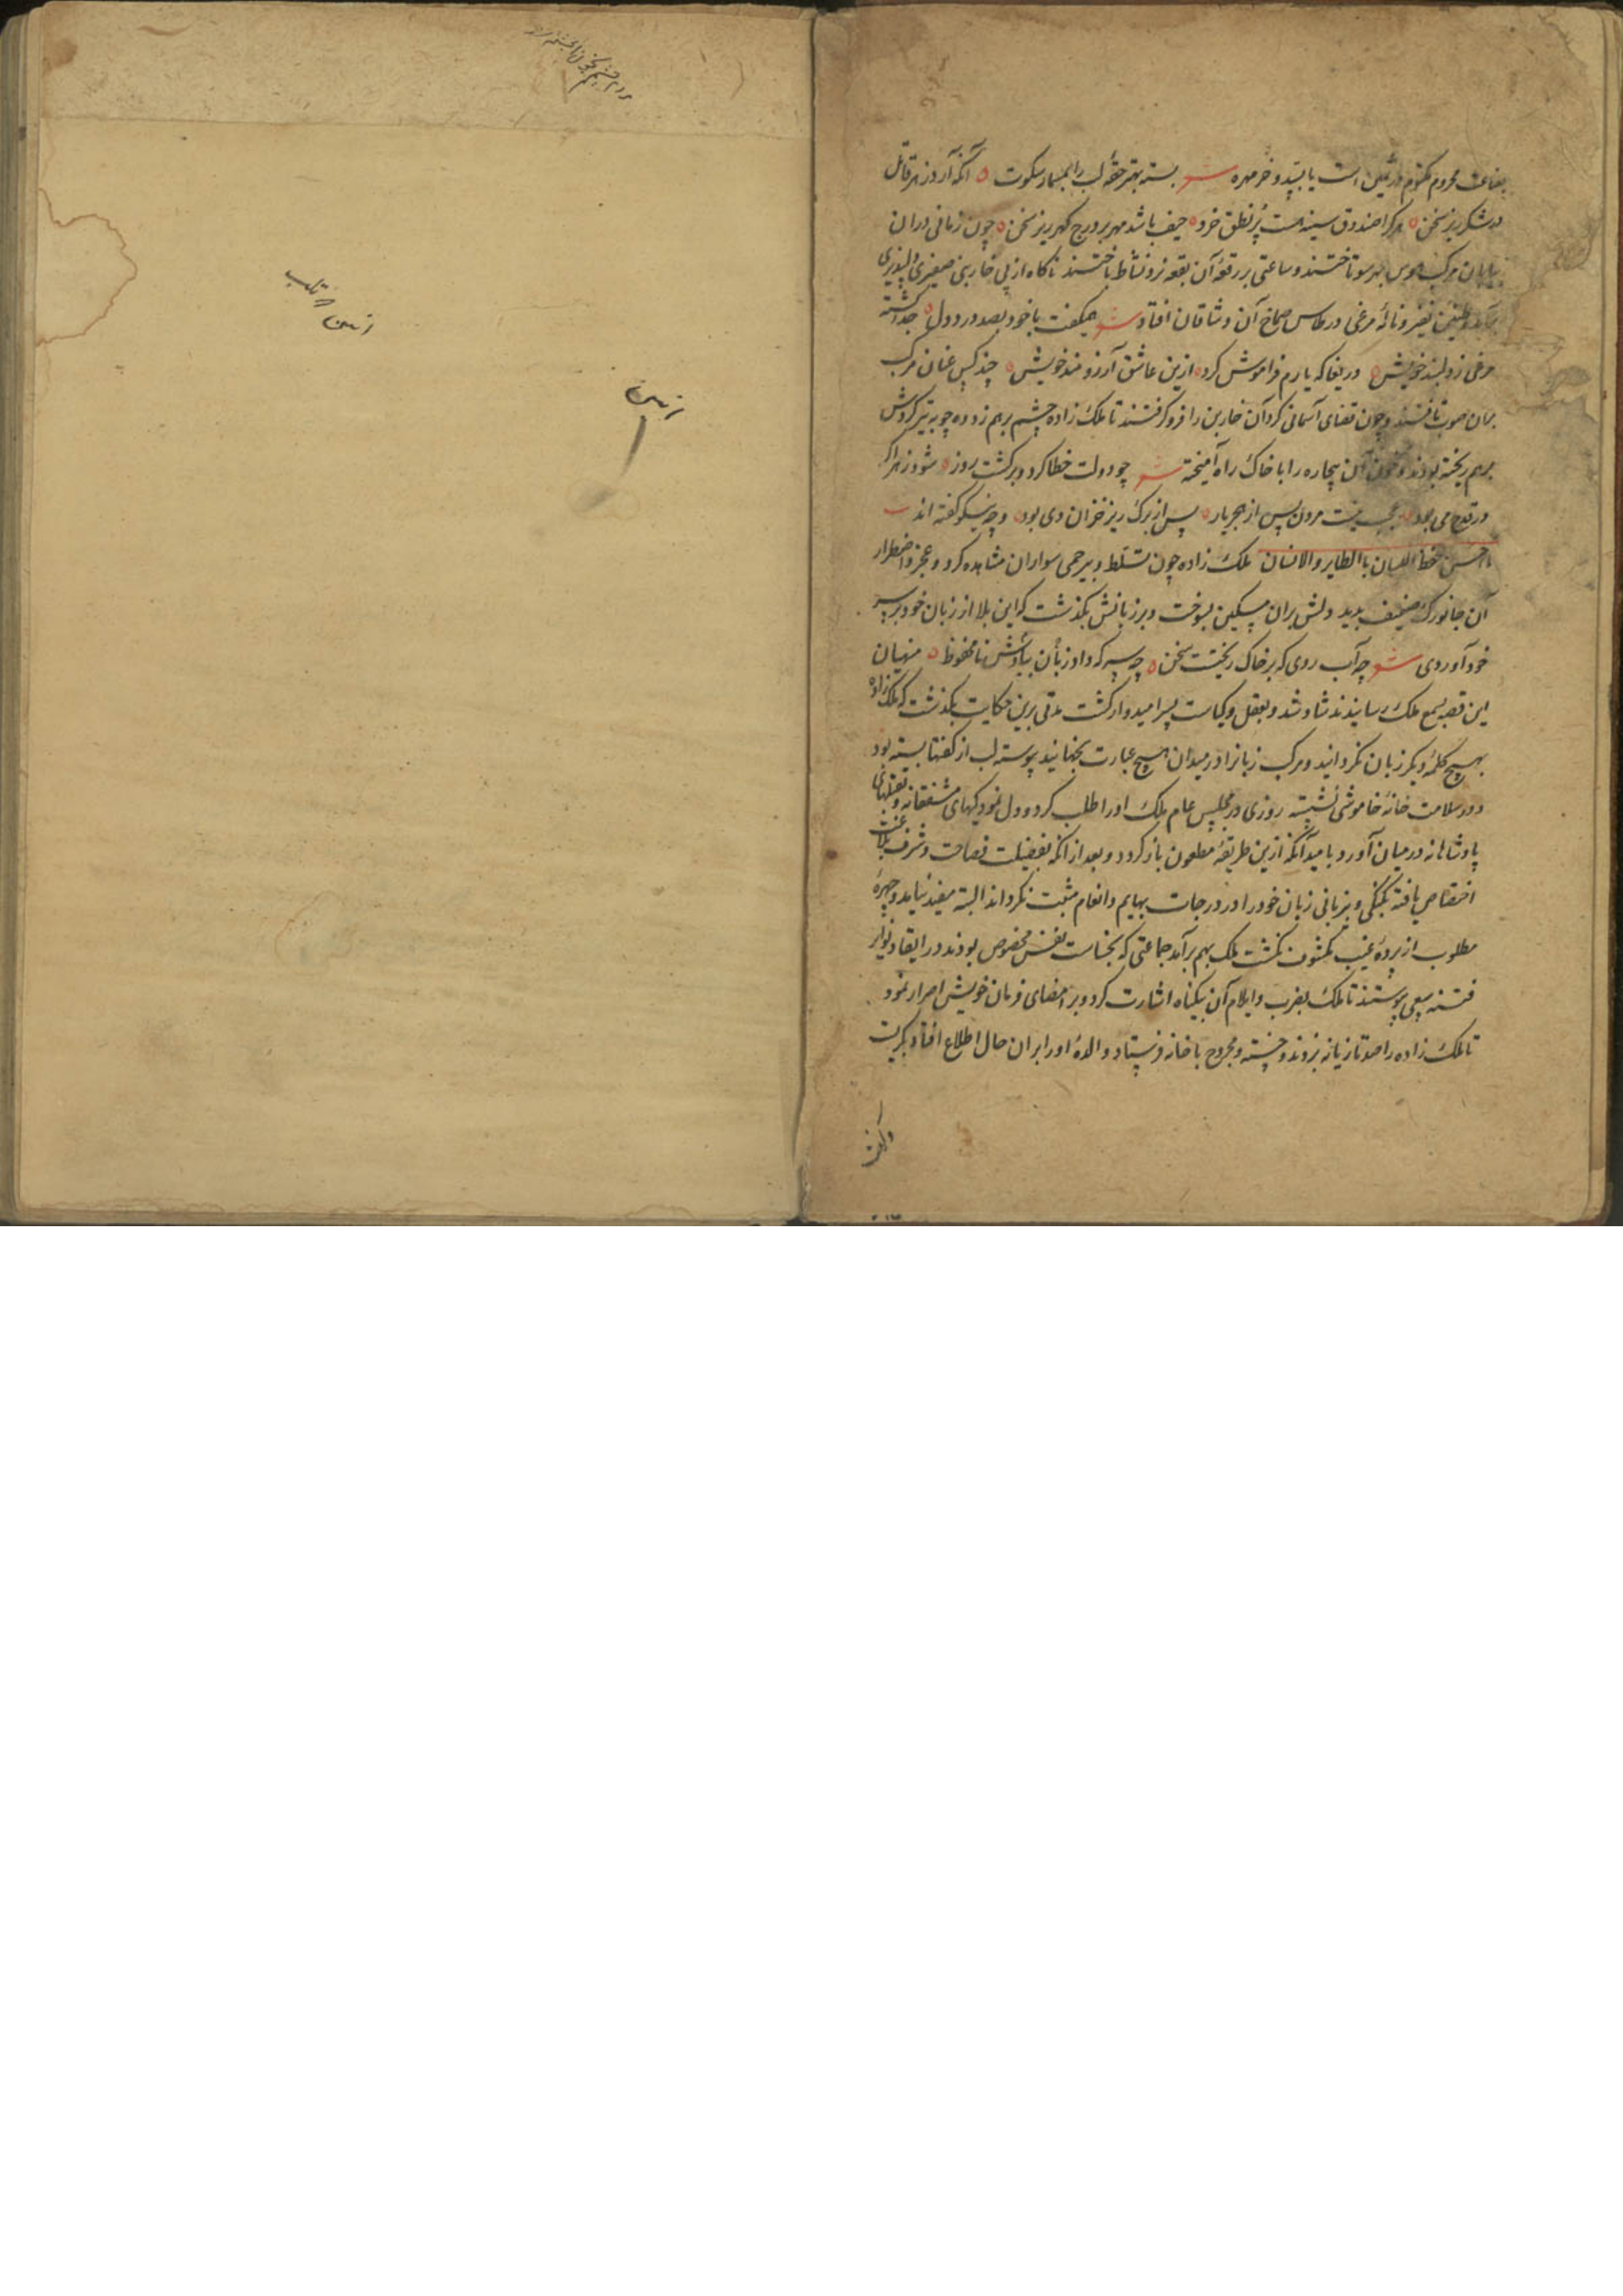 بضاعت محروم مکتوم در ثمین است یا بسد و خرمهره شعر بسته بهتر حقهٔ لب را بمسمار سکوت آنکه آرد زهر قاتل
در شکرریز سخن هر کرا صندوق سینه هست پُر نطق خرد حیف باشد مهر بر درج گهرریز سخن چون زمانی دران
بیابان مرکب هوس بهر سو تاختند و ساعتی بر رقعهٔ آن بقعه نرد نشاط باختند ناکاه از پی خاربنی صفیری دلپذیری
برآمد و طنین نفیر و نالهٔ مرغی در طاس صماخ آن وشاقان افتاد شعر همیکفت باخود بصد درد دل جدا کشته
مرغی ز دلبند خویش دریغا که یارم فراموش کرد ازین عاشق آرزومند خویش چند کس عنان مرکب
بران صوب تافتند و چون قضای آسمانی کرد آن خاربن را فرو کرفتند تا ملک زاده چشم برهم زد ده چوبه تیر کردش
برهم ریخته بودند و خون آن بیچاره را با خاک راه آمیخته شعر چو دولت خطا کرد و برکشت روز شود زهر اکر
در قدح می بود عجب نیست مردن پس از هجر یار پس از برک ریز خزان دی بود و چه نیکو کفته اند
ما احسن حفظ اللسان بالطایر والانسان ملک زاده چون تسلط و بیرحمی سواران مشاهده کرد و عجز و اضطرار
آن جانورک ضعیف بدید دلش بران مسکین بسوخت و بر زبانش بکذشت که این بلا از زبان خود بر سر
خود آوردی شعر چه آب روی که بر خاک ریخت سخن چه سر که داد زبان بباد نامحفوظ منهیان
این قصه بسمع ملک رسانیدند شاد شد و بعقل و کیاست پسر امیدوار کشت مدتی برین حکایت بکذشت که ملک زاده
بهیچ کلمهٔ دیکر زبان نکردانید و مرکب زبانرا در میدان هیچ عبارت نجهانید پیوسته لب از کفتار بسته بود
و در سلامت خانهٔ خاموشی نشسته روزی در مجلس عام ملک او را طلب کرد و دل نمودکیهای مشفقانه و تفضلهای
پادشاهانه در میان آورد بامید آنکه ازین طریقهٔ مطعون باز کردد و بعد از انکه بفضیلت فصاحت و شرف بلاغت
اختصاص یافته بکنکی و بیزبانی زبان خود را در درجات بهایم و انعام مثبت نکرداند البته مفید نیامد و چهرهٔ
مطلوب از پردهٔ غیب مکشوف نکشت ملک بهم برآمد جماعتی که بخساست نفس مخصوص بودند در ایقاد نوایر
فتنه سعی پیوستند تا ملک بضرب و ایلام آن بیکناه اشارت کرد و بر امضای فرمان خویش اصرار نمود
تا ملک زاده را صد تازیانه بزدند و خسته و مجروح با خانه فرستاد والدهٔ او را بران حال اطلاع افتاد بکریست
و کفت